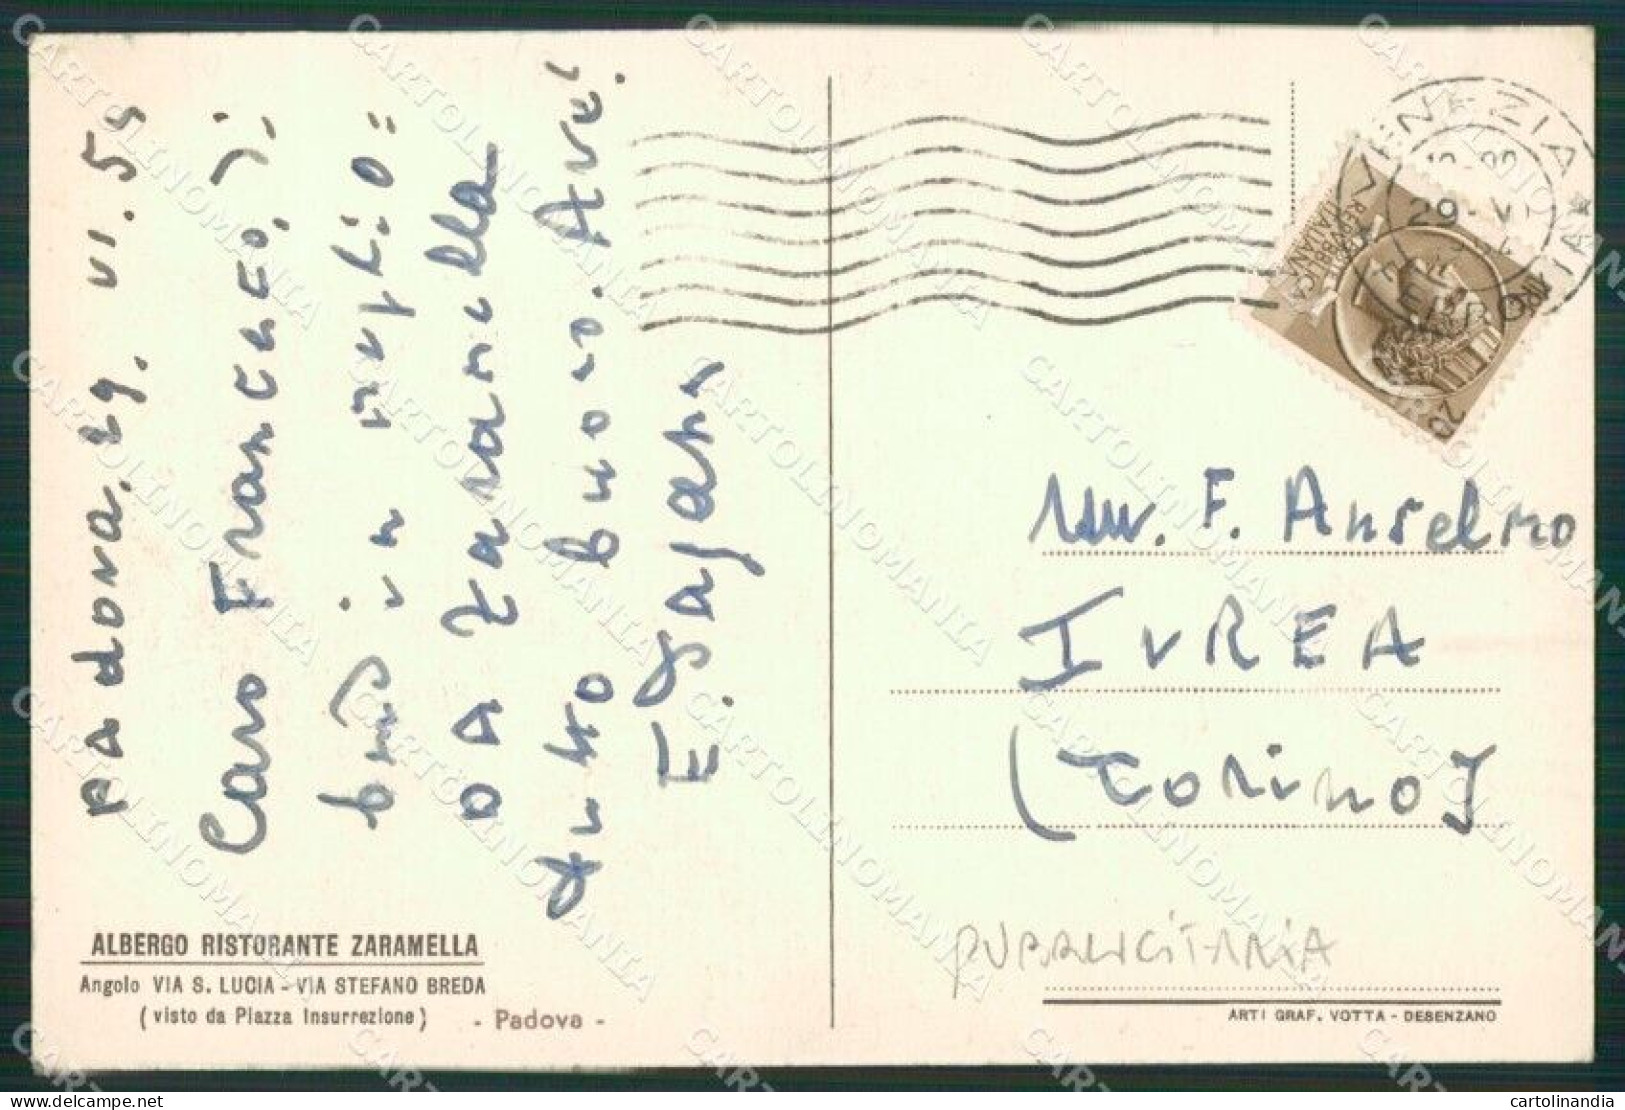 Padova. 29. VI. 54
Caro Francesco, Ti
in meglio:
da Zaramella
tutto buono. Ave!
VENEZIA
29-VI
FERROVIA
REPUBBLICA
ITALIANA
F. Anselmo
IVREA
(Torino)
PUBBLICITARIA
ALBERGO RISTORANTE ZARAMELLA
Angolo VIA S. LUCIA - VIA STEFANO BREDA
(visto da Piazza Insurrezione) - Padova -
ARTI GRAF. VOTTA - DESENZANO
CARTOLINOMANIA
www.delcampe.net
cartolinandia